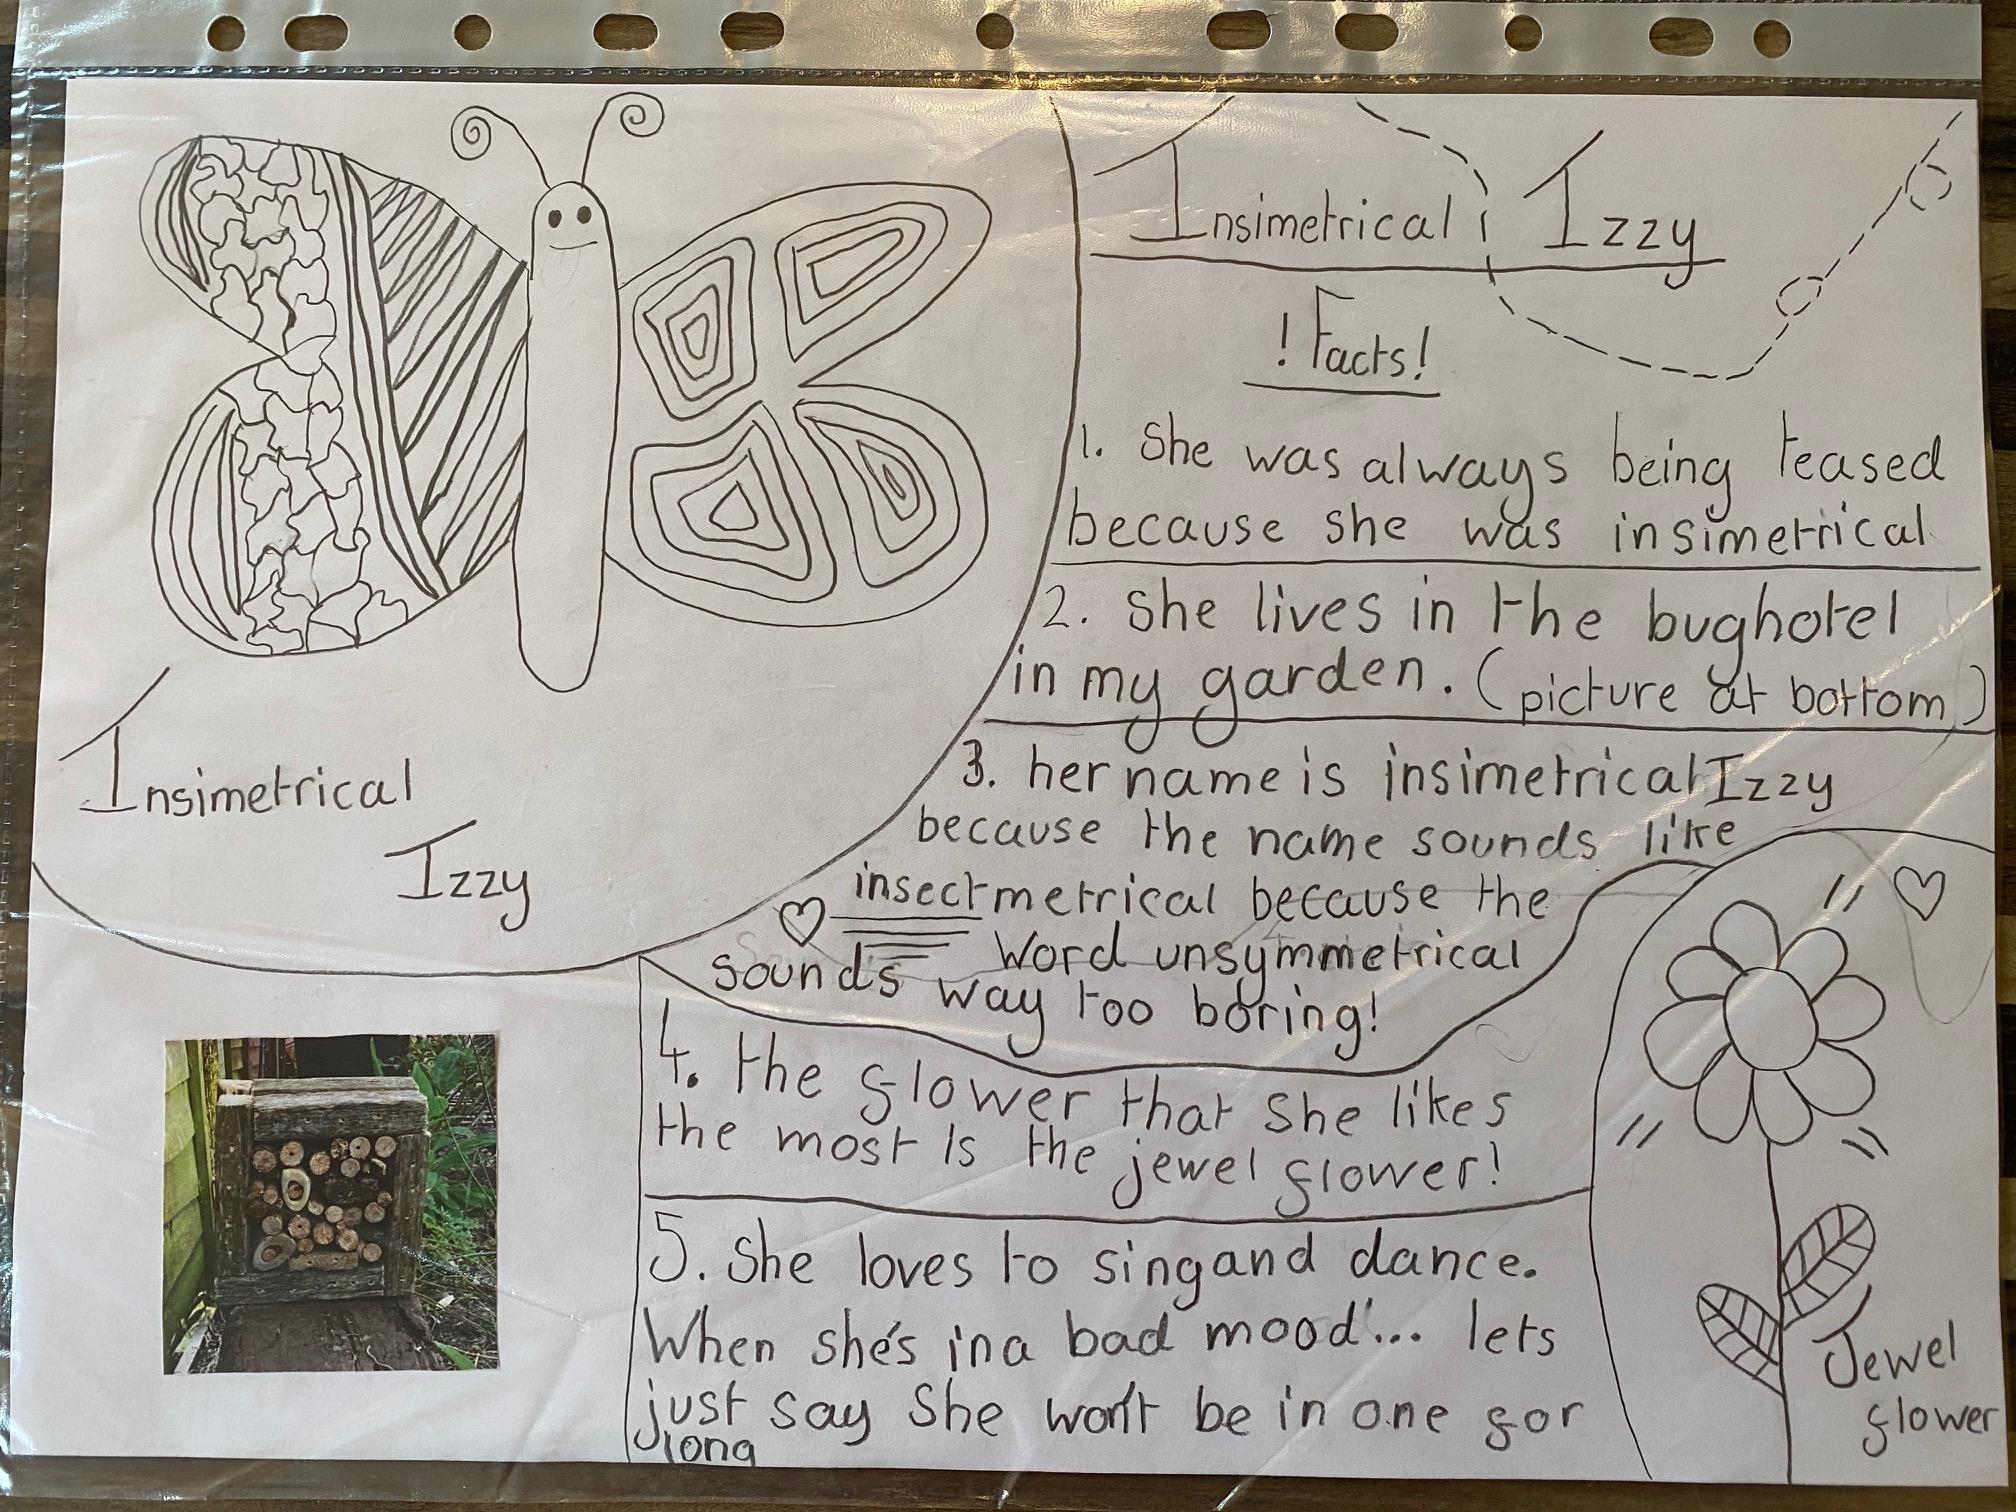 Insimetrical
Izzy
Insimetrical Izzy
! Facts!
1. She was always being teased
because she was insimetrical
2. She lives in the bughotel
in my garden. (picture at bottom)
3. her name is insimetrical Izzy
because the name sounds like
insectmetrical because the
word unsymmetrical
sounds way too boring!
4. the flower that she likes
the most is the jewel flower!
5. She loves to sing and dance.
When she's in a bad mood... lets
just say she won't be in one for
long
Jewel
flower